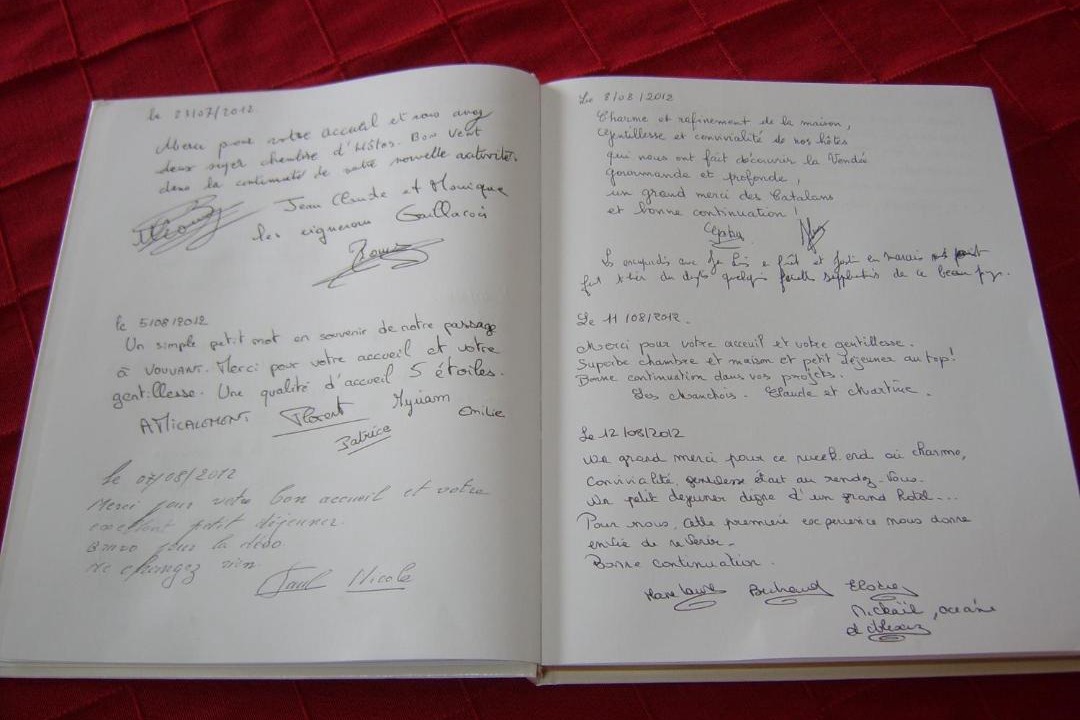 le 23/07/2012.
Merci pour votre accueil et vous avez
deux super chambre d'Hôtes. Bon Vent
dans la continuité de votre nouvelle activités.
Jean Claude et Monique
les vignerons Gaillacois
le 5/08/2012
Un simple petit mot en souvenir de notre passage
à VOUVANT. Merci pour votre accueil et votre
gentillesse. Une qualité d'accueil 5 étoiles.
AMICALEMENT Florent Myriam Emilie
Patrice
Le 07/08/2012
Merci pour votre bon accueil et votre
excellent petit déjeuner.
Bravo pour la déco
Ne changez rien.
Paul Nicole
Le 8/08/2012
Charme et rafinement de la maison,
Gentillesse et convivialité de nos hôtes
qui nous ont fait découvrir la Vendée
gourmande et profonde,
un grand merci des Catalans
et bonne continuation !
de ce beau pays.
Le 11/08/2012.
Merci pour votre acceuil et votre gentillesse.
Superbe chambre et maison et petit dejeuner au top!
Bonne continuation dans vos projets.
Les Manchois. Claude et Martine.
Le 12/08/2012
Un grand merci pour ce week end où charme,
Convivialité, était au rendez-vous.
Un petit dejeuner digne d'un grand hotel...
Pour nous, cette premiere experience nous donne
envie de revenir.
Bonne continuation.
Marie Laure Bertrand Elodie
Mickaïl, océane
et